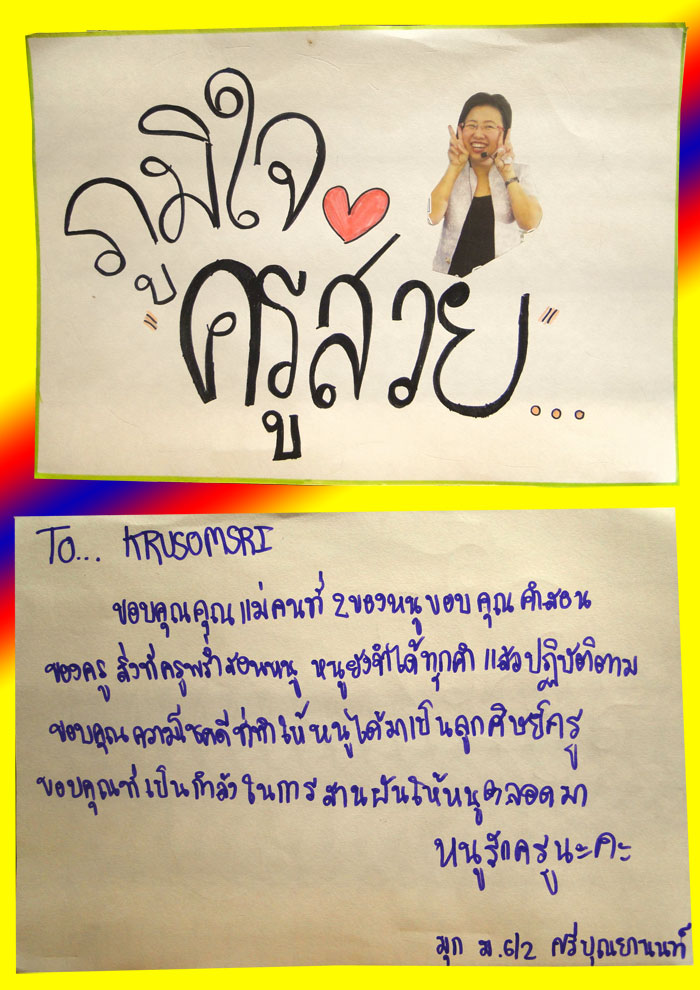 ภูมิใจ
"ครูสวย"...
To... KRUSOMSRI
ขอบคุณคุณแม่คนที่ 2ของหนู ขอบคุณคำสอน
ของครู สิ่งที่ครูพร่ำสอนหนู หนูยังจำได้ทุกคำ แล้วปฏิบัติตาม
ขอบคุณความโชคดีที่ทำให้หนูได้มาเป็นลูกศิษย์ครู
ขอบคุณที่เป็นกำลังในการสานฝันให้หนูตลอดมา
หนูรักครูนะคะ
มุก ม.6/2 ศรีบุณยานนท์